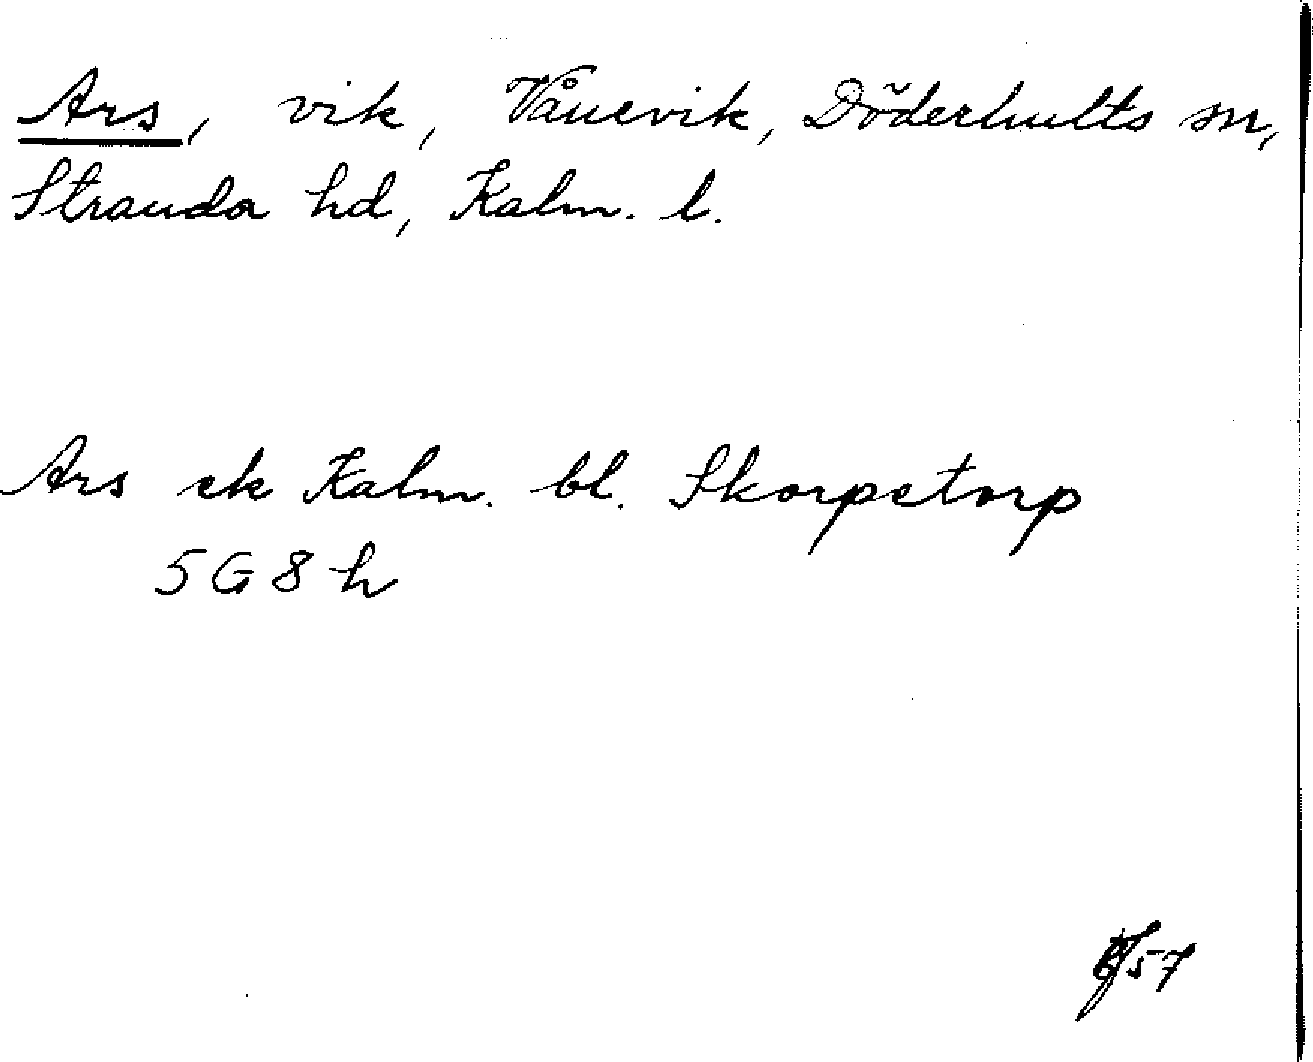 Ars, vik, Vånevik, Döderhults sn,
Stranda hd, Kalm. l.
Ars ek Kalm. bl. Skorpetorp
5G8h
57